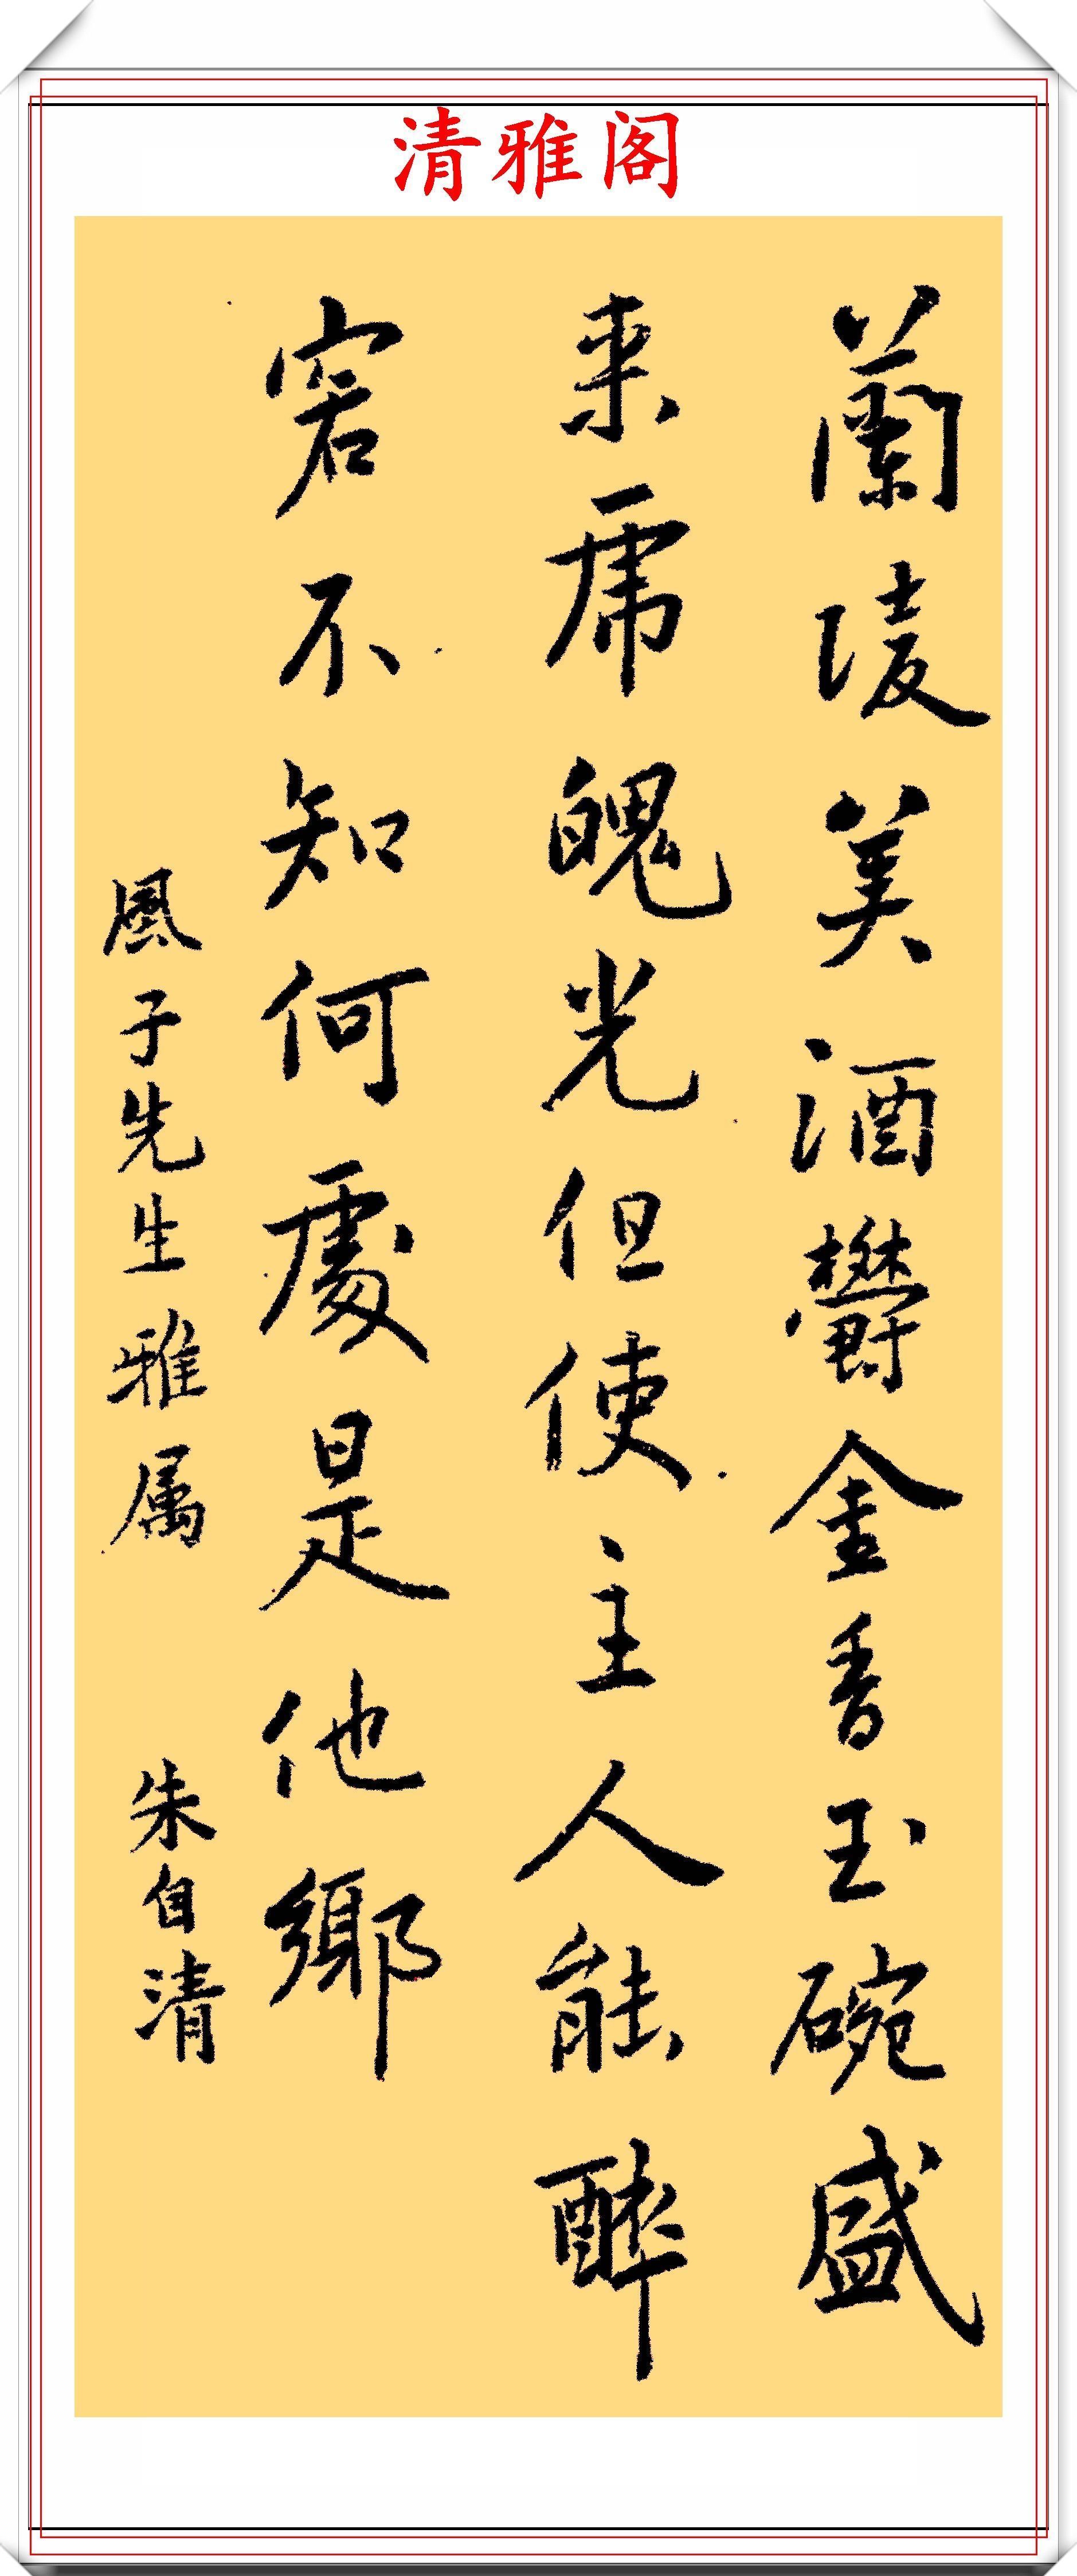 清雅阁
蘭陵美酒欝金香玉碗盛
来席魄光但使主人能醉
客不知何處是他鄉
風子先生雅属
朱自清